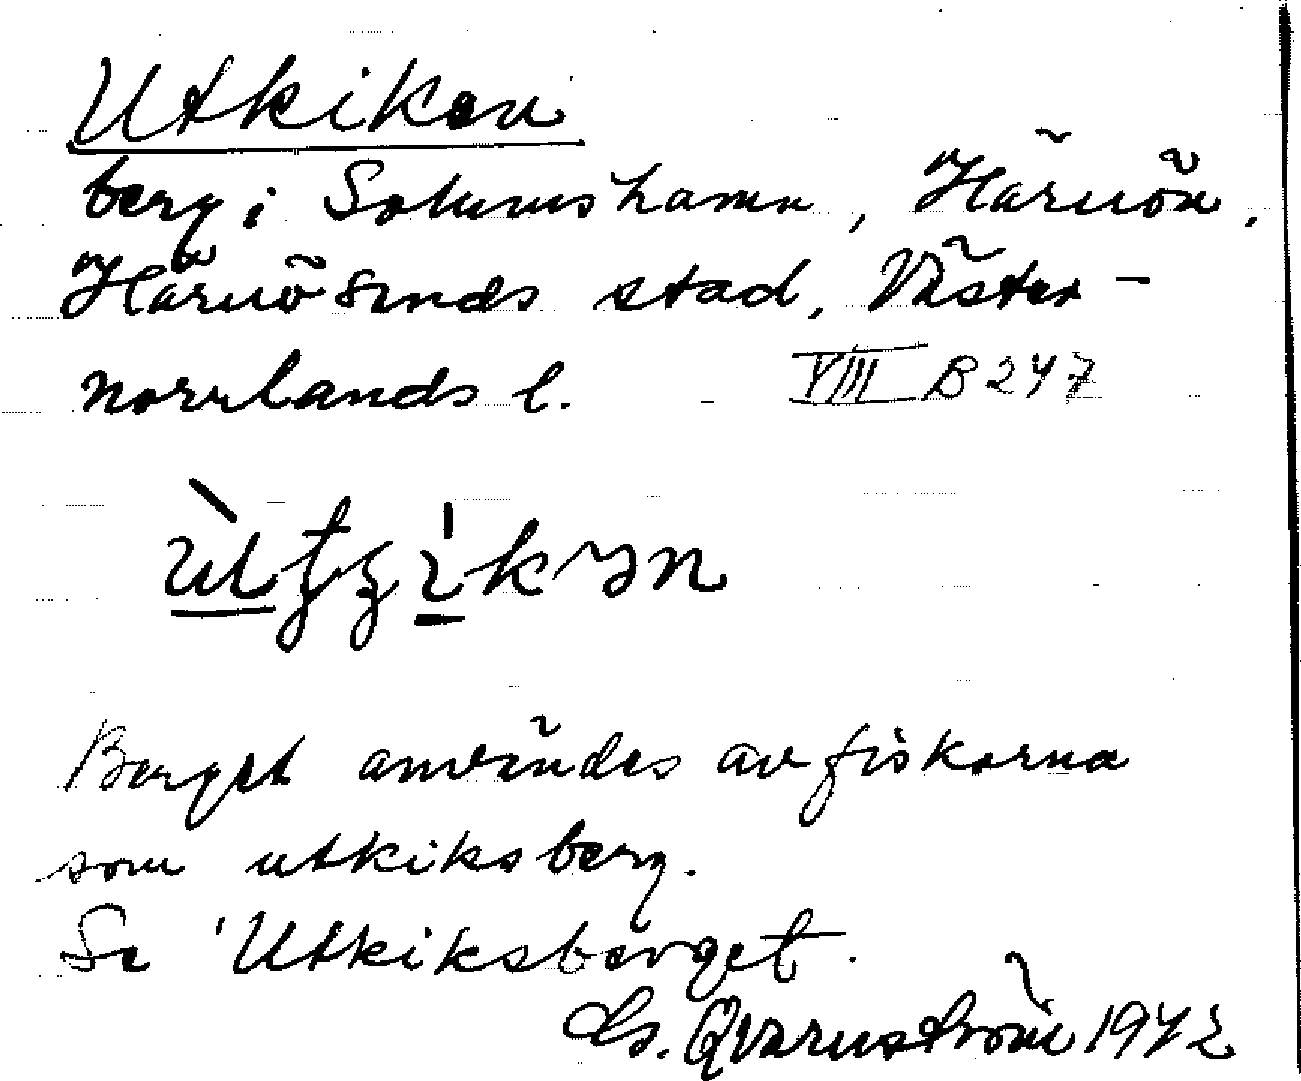 Utkiken
berg i Solumshamn, Härnön,
Härnösands stad, Väster-
norrlands l. VIII B 247
Berget användes av fiskarna
som utkiksberg.
Se Utkiksberget.
Qvarnström 1942